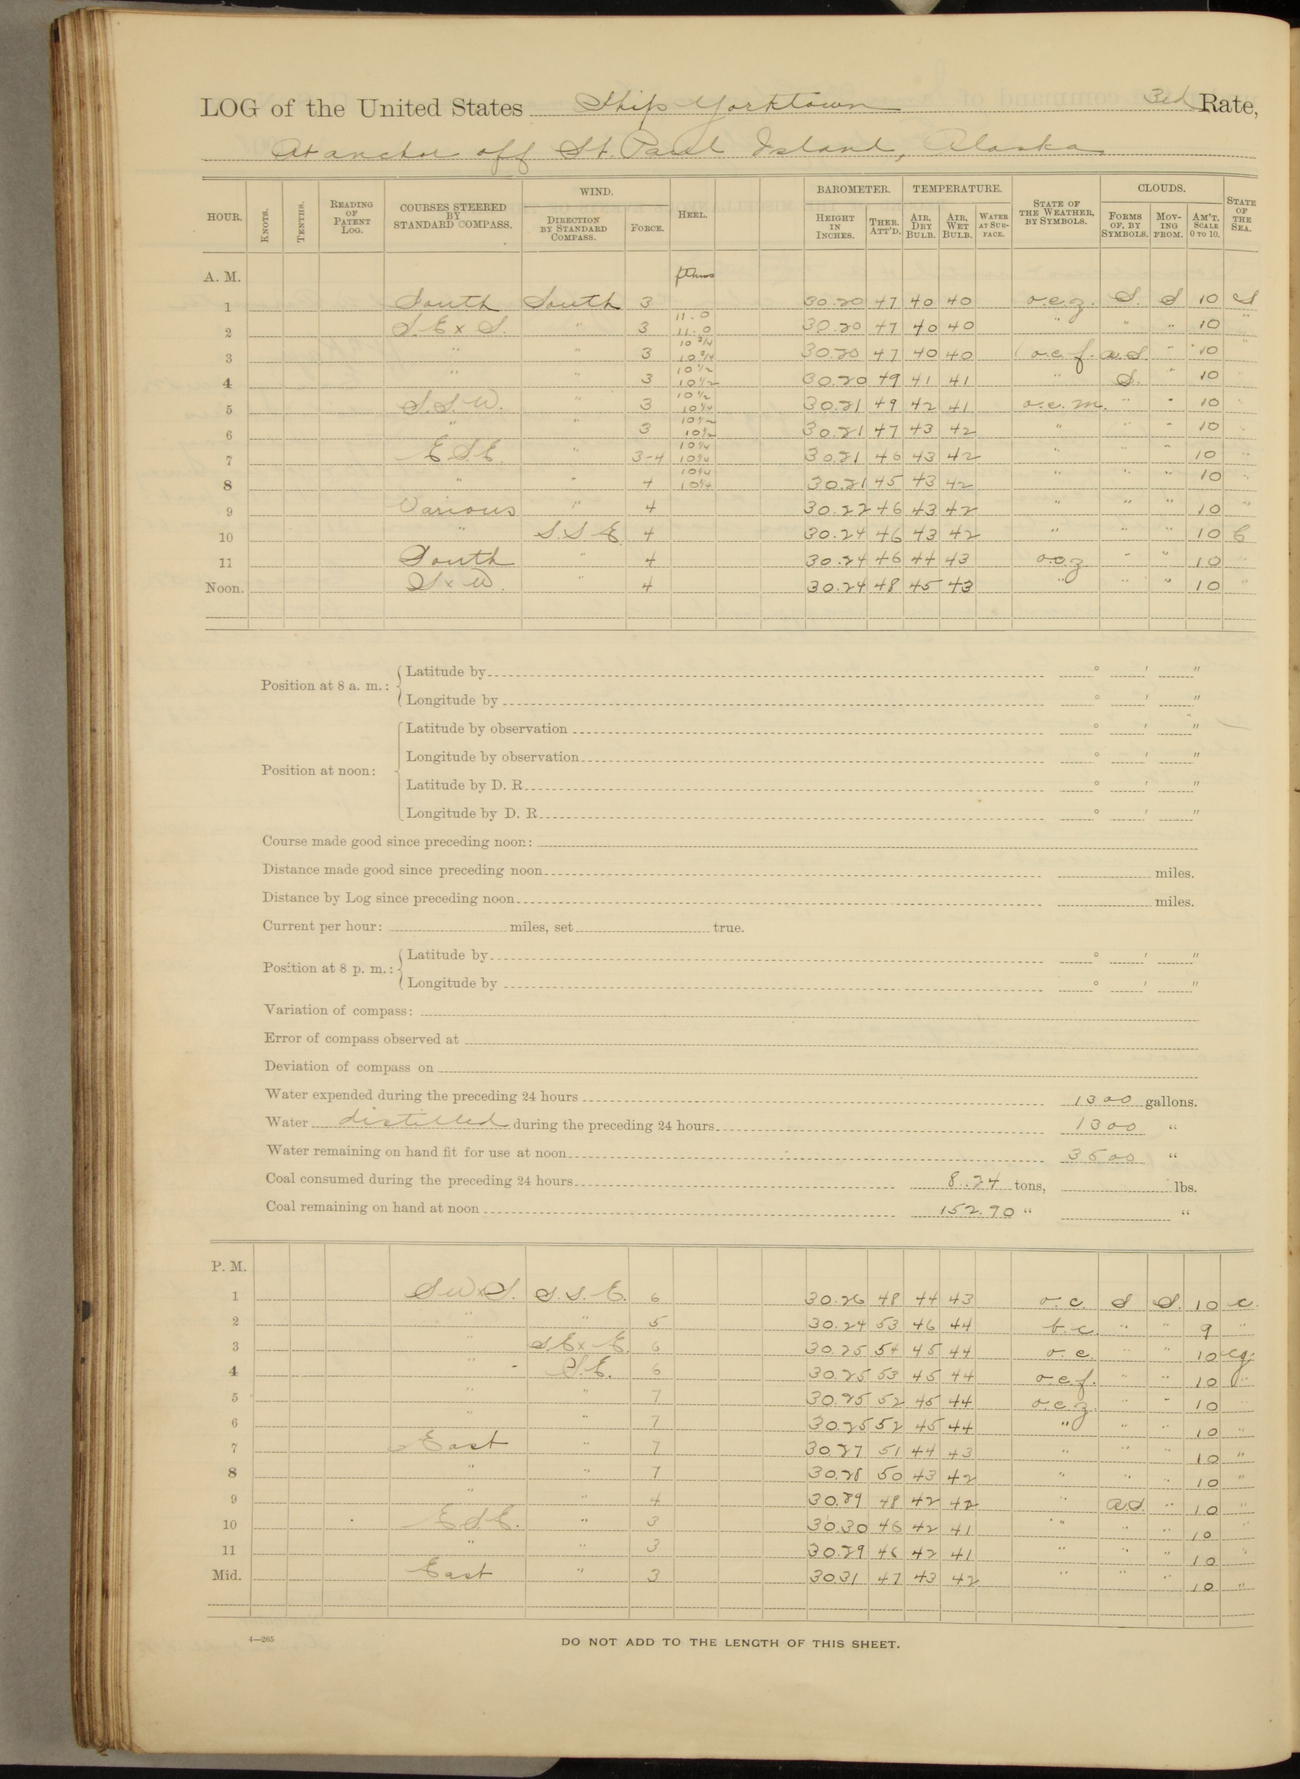 LOG of the United States Ship Yorktown 3rd Rate,
At anchor off St. Paul Island, Alaska
HOUR. KNOTS. TENTHS. READING OF PATENT LOG. COURSES STEERED BY STANDARD COMPASS. WIND. DIRECTION BY STANDARD COMPASS. FORCE. HEEL. BAROMETER. HEIGHT IN INCHES. THER. ATT'D. TEMPERATURE. AIR, DRY BULB. AIR, WET BULB. WATER AT SURFACE. STATE OF THE WEATHER, BY SYMBOLS. CLOUDS. FORMS OF, BY SYMBOLS. MOVING FROM. AM'T. SCALE 0 TO 10. STATE OF THE SEA.
A. M. fthms
1 South South 3 30.20 47 40 40 o.c.z. S. S 10 S
11.0
2 S.E x S. " 3 11.0 30.20 47 40 40 " " " 10 "
10 3/4
3 " " 3 10 3/4 30.20 47 40 40 o.c.f. a.S. " 10 "
10 1/2
4 " " 3 10 1/2 30.20 49 41 41 " S. " 10 "
10 1/2
5 S.S.W. " 3 10 1/4 30.21 49 42 41 o.c.m. " " 10 "
6 " " 3 30.21 47 43 42 " " " 10 "
10 1/4
7 E.S.E. " 3-4 10 1/4 30.21 46 43 42 " " " 10 "
10 1/4
8 " " 4 10 1/4 30.21 45 43 42 " " " 10 "
9 Various " 4 30.22 46 43 42 " " " 10 "
10 " S.S.E. 4 30.24 46 43 42 " " " 10 C
11 South " 4 30.24 46 44 43 o.c.z " " 10 "
Noon. S x W. " 4 30.24 48 45 43 " " " 10 "
Position at 8 a. m.: Latitude by ° ' "
Longitude by ° ' "
Position at noon: Latitude by observation ° ' "
Longitude by observation ° ' "
Latitude by D. R. ° ' "
Longitude by D. R. ° ' "
Course made good since preceding noon:
Distance made good since preceding noon miles.
Distance by Log since preceding noon miles.
Current per hour: miles, set true.
Position at 8 p. m.: Latitude by ° ' "
Longitude by ° ' "
Variation of compass:
Error of compass observed at
Deviation of compass on
Water expended during the preceding 24 hours 1300 gallons.
Water distilled during the preceding 24 hours 1300 "
Water remaining on hand fit for use at noon 3500 "
Coal consumed during the preceding 24 hours 8.24 tons, lbs.
Coal remaining on hand at noon 152.90 " "
P. M.
1 SWxS. S.S.E. 6 30.26 48 44 43 o.c. S S. 10 C.
2 " " 5 30.24 53 46 44 b.c. " " 9 "
3 " S.E x E. 6 30.25 54 45 44 o.c " " 10 Cg.
4 " S.E. 6 30.25 53 45 44 o.c.f. " " 10 "
5 " " 7 30.25 52 45 44 o.c.z. " " 10 "
6 " " 7 30.25 52 45 44 " " " 10 "
7 East " 7 30.27 51 44 43 " " " 10 "
8 " " 7 30.28 50 43 42 " " " 10 "
9 " " 4 30.29 48 42 42 " a.S. " 10 "
10 E.S.E. " 3 30.30 46 42 41 " " " 10 "
11 " " 3 30.29 46 42 41 " " " 10 "
Mid. East " 3 30.31 47 43 42 " " " 10 "
4—265
DO NOT ADD TO THE LENGTH OF THIS SHEET.